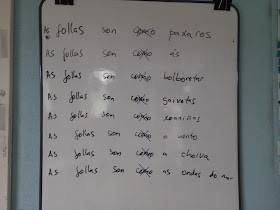 As follas son como paxaros
As follas son como ás
As follas son como bolboretas
As follas son como gaivotas
As follas son como xoaniñas
As follas son como o vento
As follas son como a choiva
As follas son como as ondas do mar